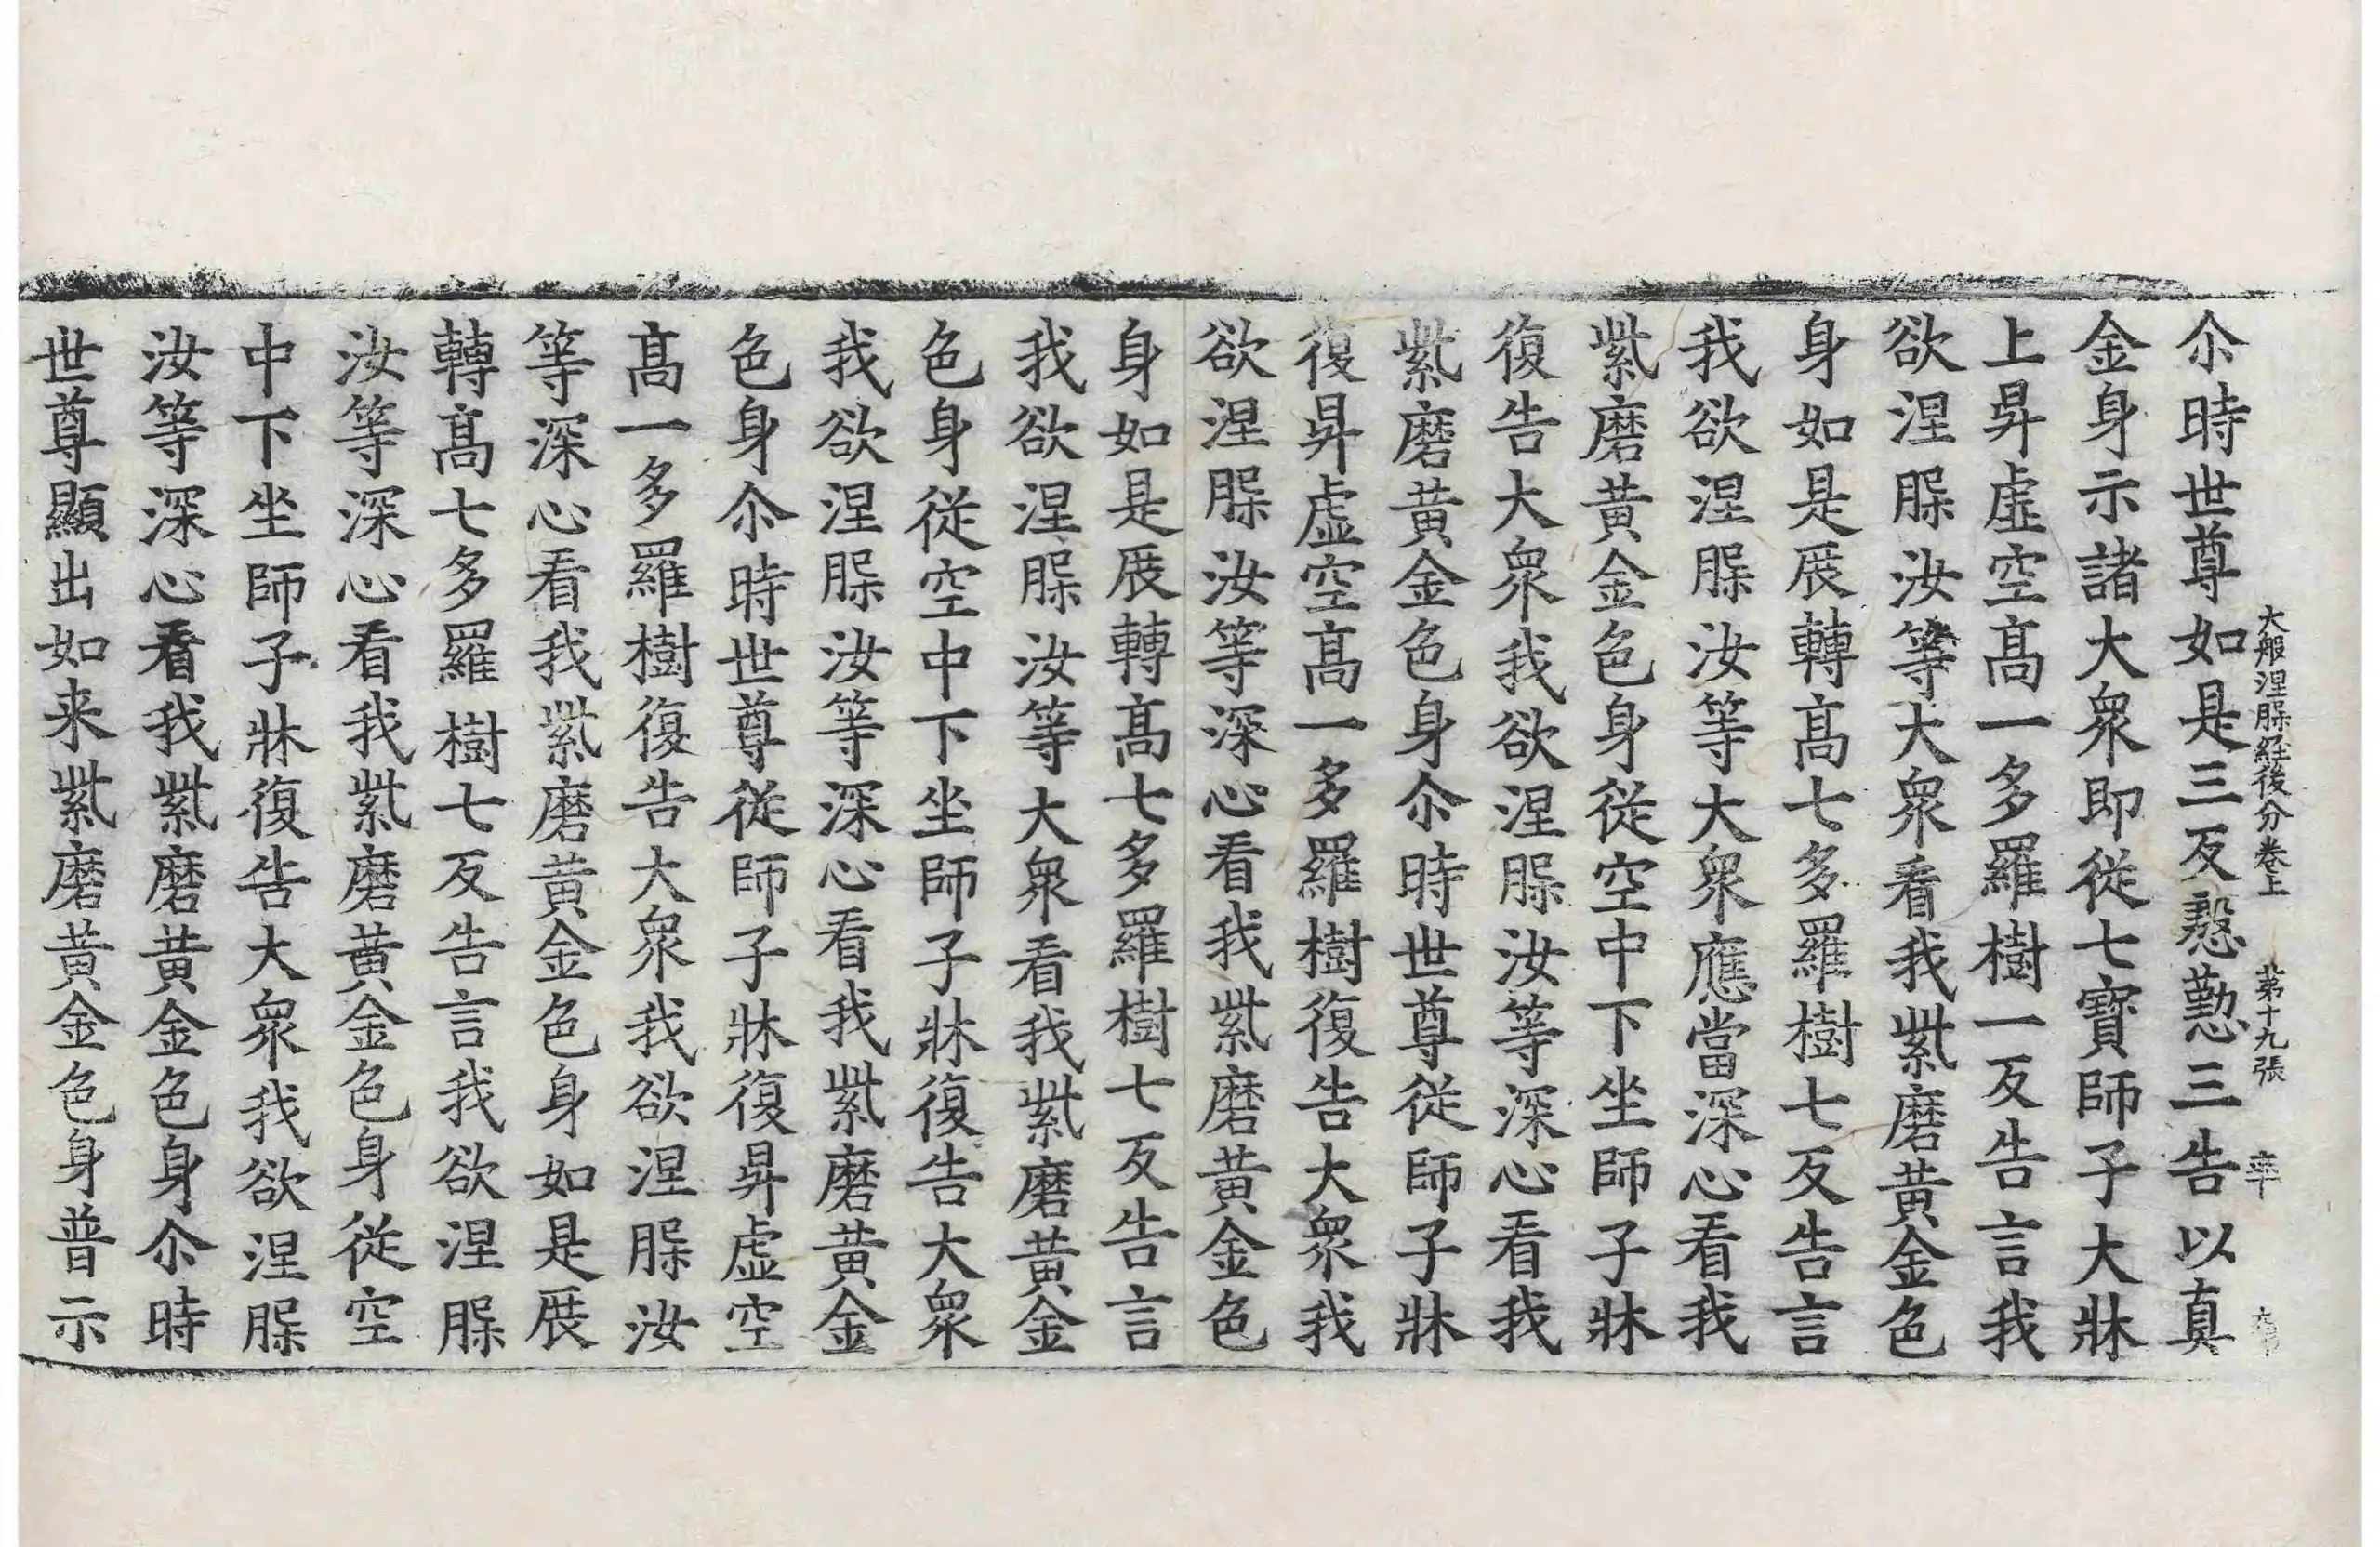 尒時世尊如是三反慇懃三告以真
大般涅脲經後分卷上 第十九張 率
金身示諸大衆即從七寶師子大牀
上昇虛空髙一多羅樹一反告言我
欲涅脲汝等大衆看我紫磨黃金色
身如是展轉髙七多羅樹七反告言
我欲涅脲汝等大衆應當深心看我
紫磨黃金色身從空中下坐師子牀
復告大衆我欲涅脲汝等深心看我
紫磨黃金色身尒時世尊從師子牀
復昇虛空髙一多羅樹復告大衆我
欲涅脲汝等深心看我紫磨黃金色
身如是展轉髙七多羅樹七反告言
我欲涅脲汝等大衆看我紫磨黃金
色身從空中下坐師子牀復告大衆
我欲涅脲汝等深心看我紫磨黃金
色身尒時世尊從師子牀復昇虛空
髙一多羅樹復告大衆我欲涅脲汝
等深心看我紫磨黃金色身如是展
轉髙七多羅樹七反告言我欲涅脲
汝等深心看我紫磨黃金色身從空
中下坐師子牀復告大衆我欲涅脲
汝等深心看我紫磨黃金色身尒時
世尊顯出如来紫磨黃金色身普示